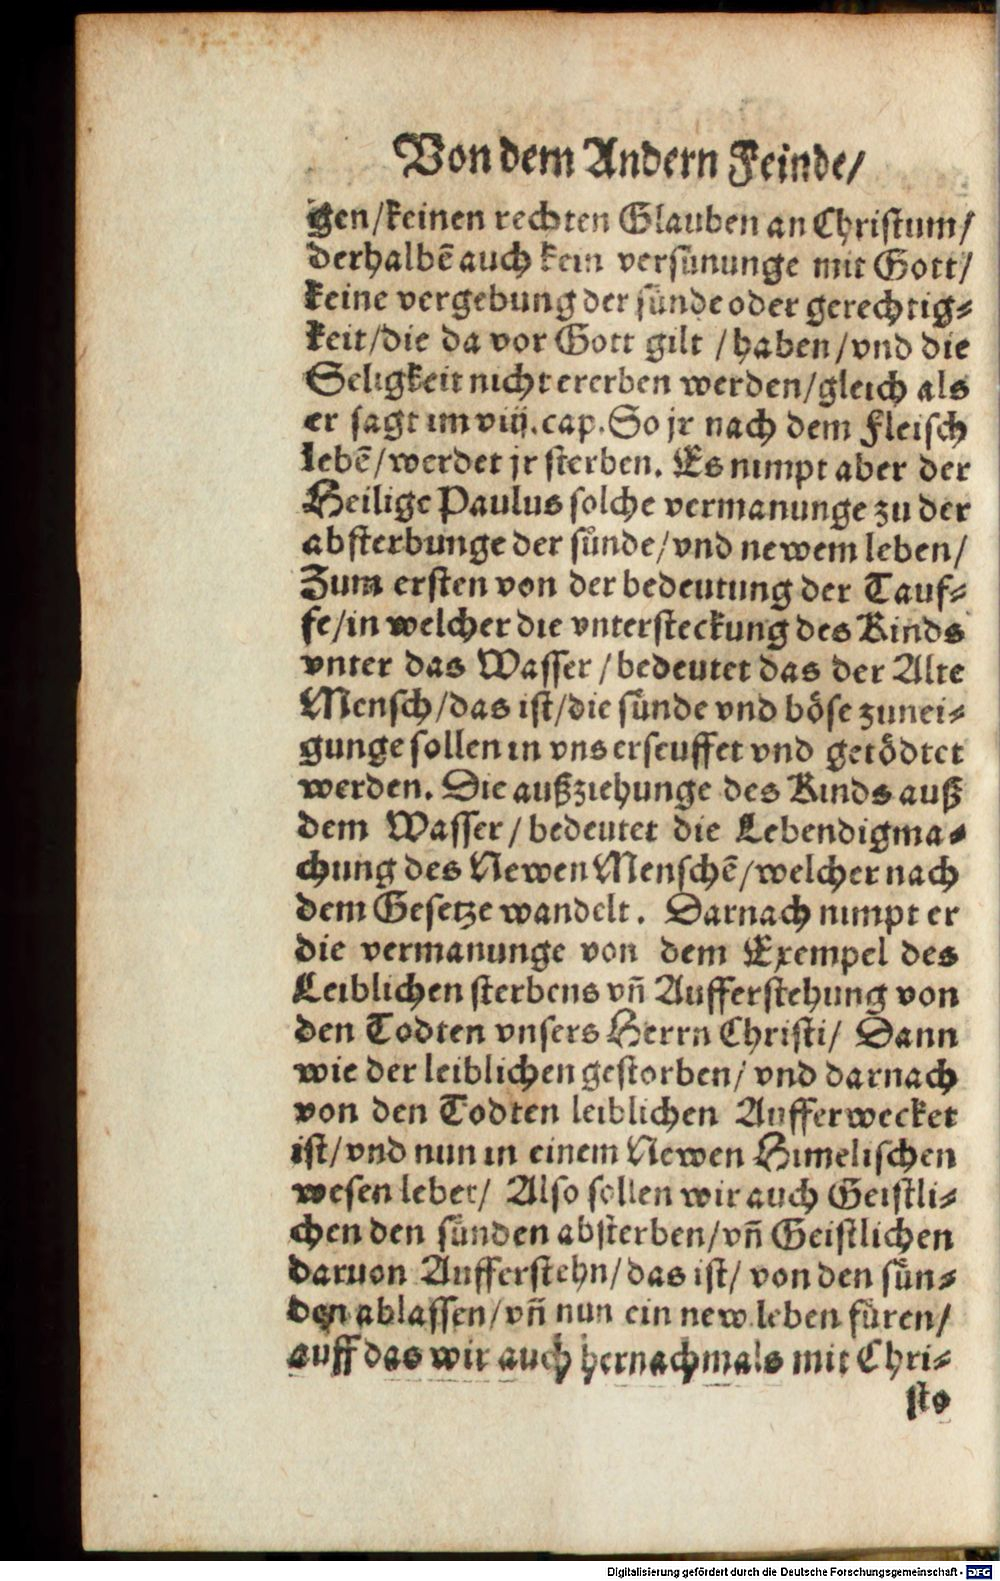 Von dem Andern Feinde/
gen/keinen rechten Glauben an Christum/
derhalbē auch kein versünunge mit Gott/
keine vergebung der sünde oder gerechtig⸗
keit/die da vor Gott gilt /haben/vnd die
Seligkeit nicht ererben werden/gleich als
er sagt im viij.cap.So jr nach dem Fleisch
lebē/werdet jr sterben. Es nimpt aber der
Heilige Paulus solche vermanunge zu der
absterbunge der sünde/vnd newem leben/
Zum ersten von der bedeutung der Tauf⸗
fe/in welcher die vntersteckung des Kinds
vnter das Wasser /bedeutet das der Alte
Mensch/das ist/die sünde vnd böse zunei⸗
gunge sollen in vns erseuffet vnd getödtet
werden. Die außziehunge des Kinds auß
dem Wasser /bedeutet die Lebendigma⸗
chung des Newen Menschē/welcher nach
dem Gesetze wandelt. Darnach nimpt er
die vermanunge von dem Exempel des
Leiblichen sterbens vn̄ Aufferstehung von
den Todten vnsers Herrn Christi/ Dann
wie der leiblichen gestorben/ vnd darnach
von den Todten leiblichen Aufferwecket
ist/vnd nun in einem Newen Himelischen
wesen lebet/ Also sollen wir auch Geistli⸗
chen den sünden absterben/vn̄ Geistlichen
daruon Aufferstehn/das ist/ von den sün⸗
den ablassen/vn̄ nun ein new leben füren/
auff das wir auch hernachmals mit Chri⸗
sto
Digitalisierung gefördert durch die Deutsche Forschungsgemeinschaft - DFG